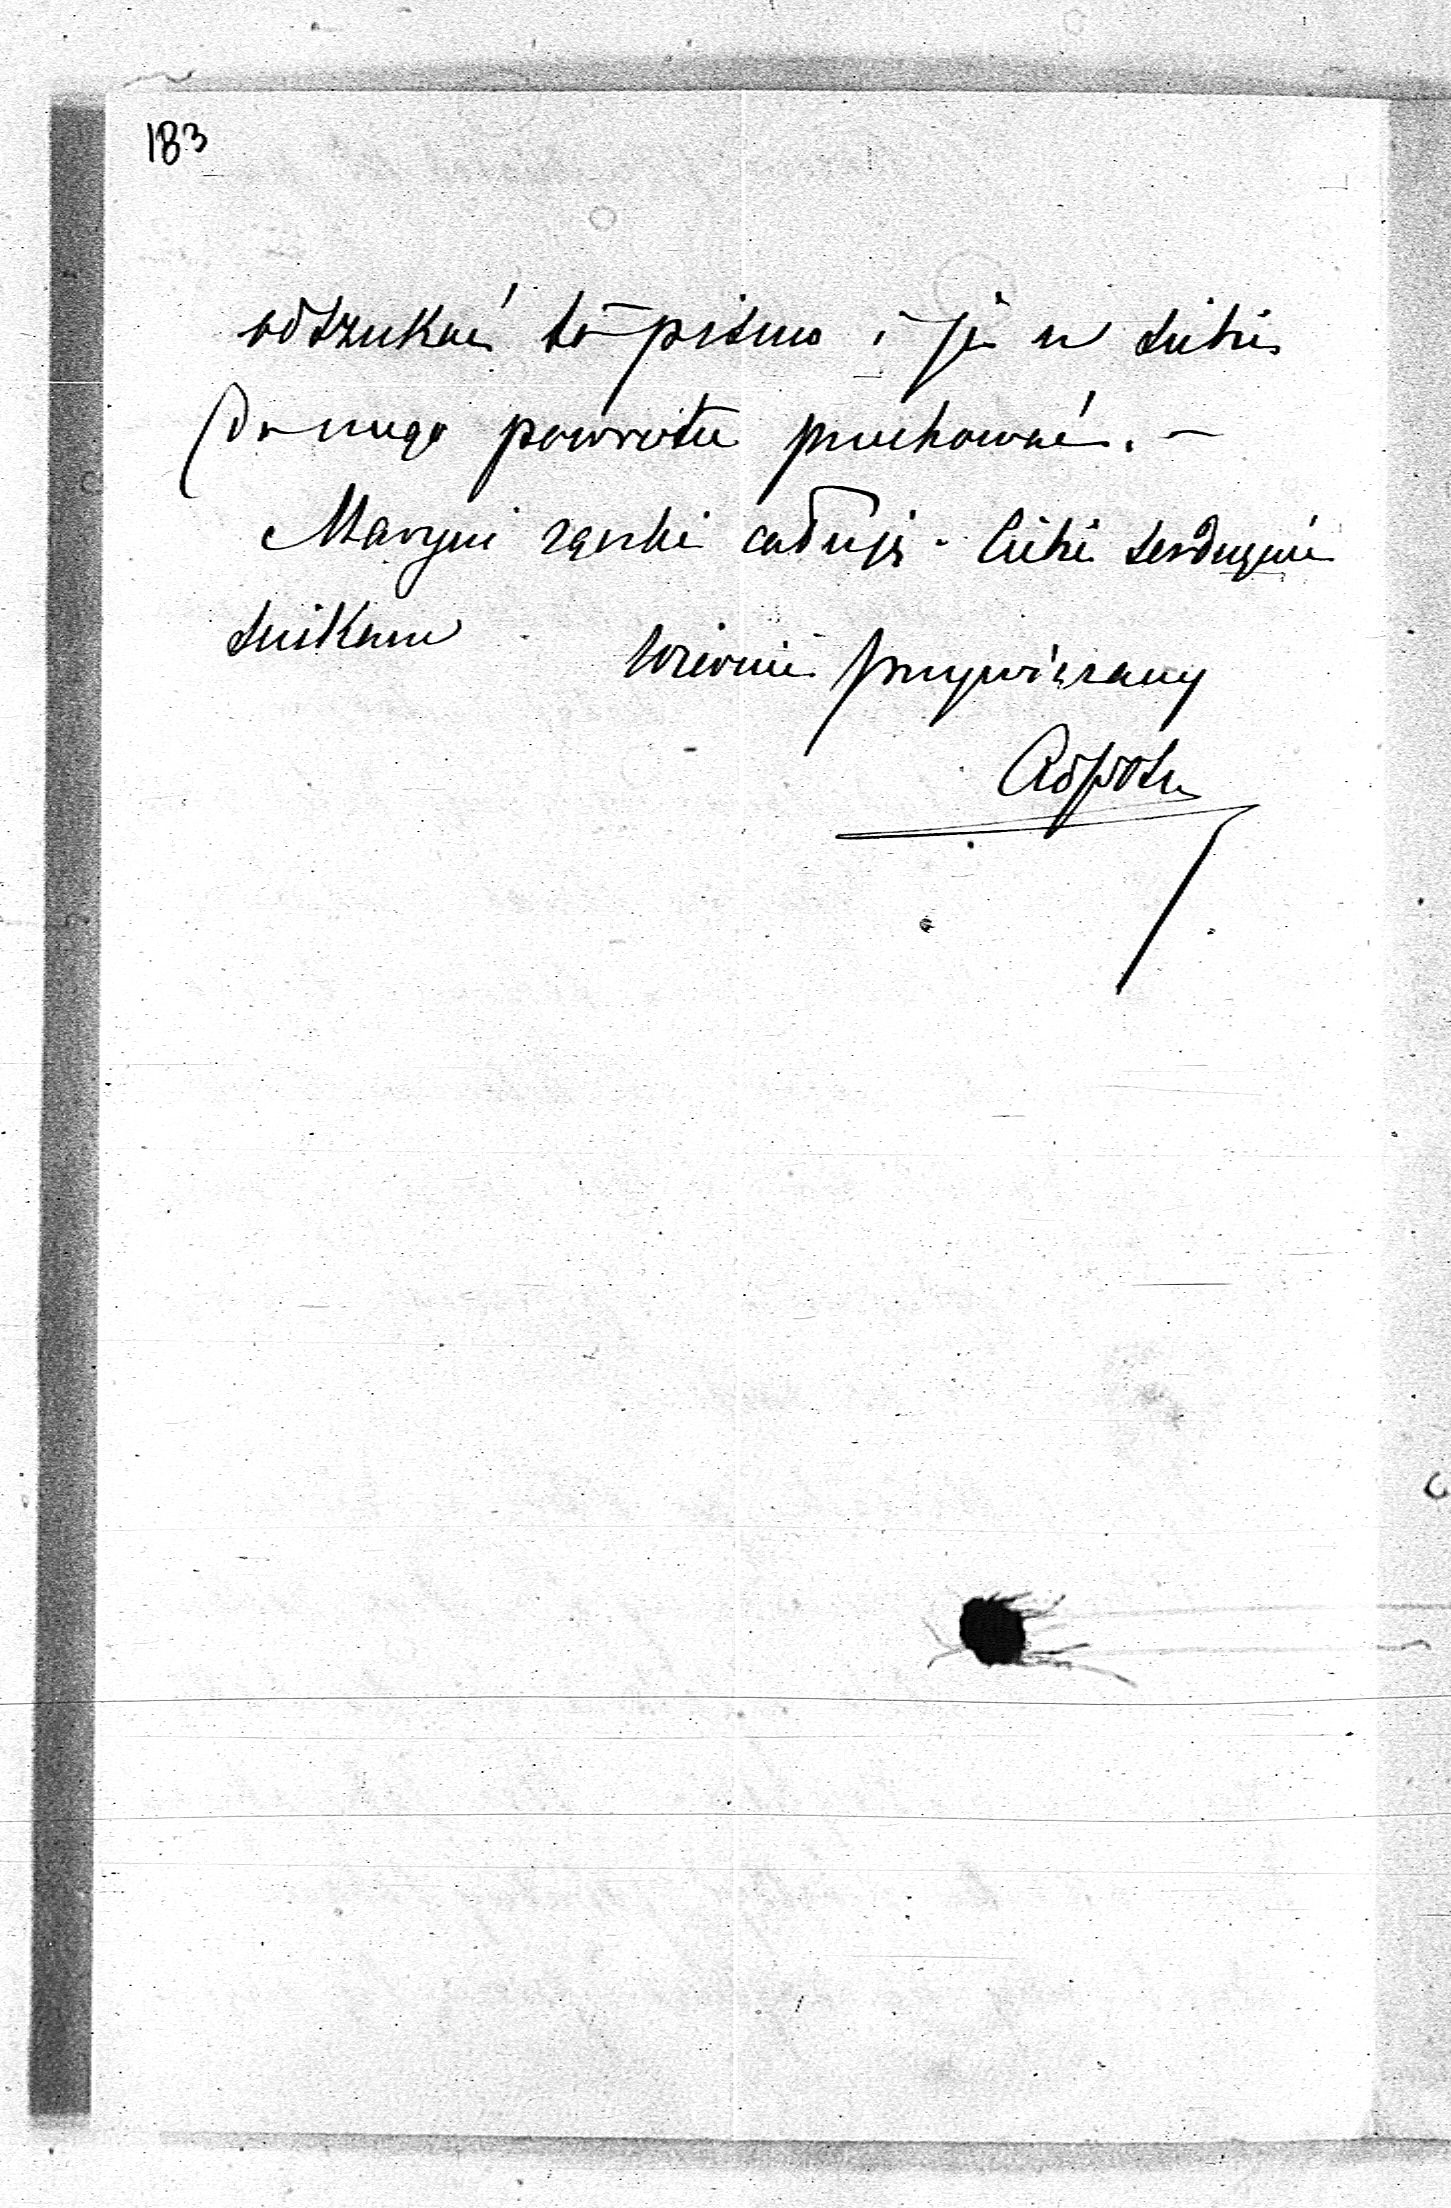 183
odszukać to pismo i je u siebie
do mego powrotu przechować. —
Maryni rączki całuję. Ciebie serdecznie
ściskam
Wiernie przywiązany